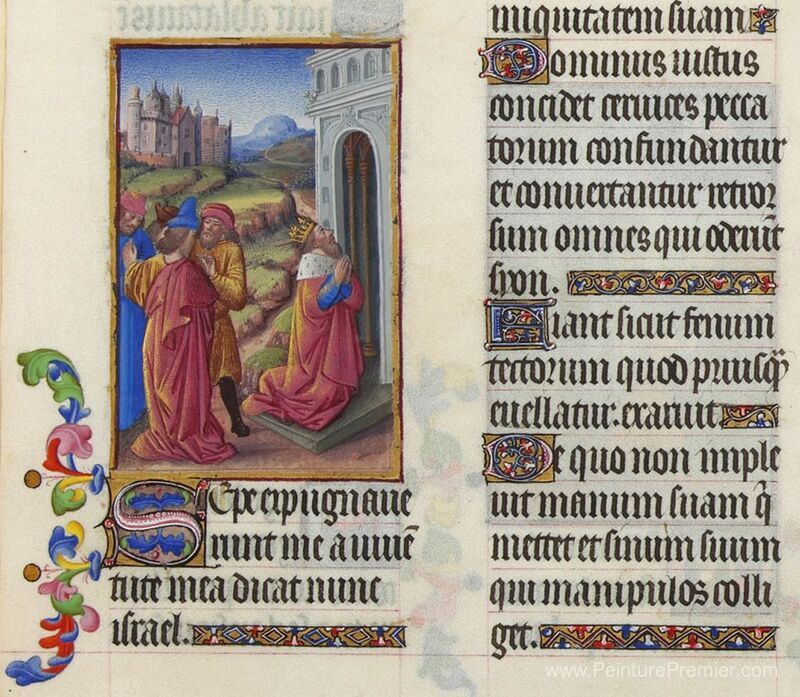 Sepe expugnave
runt me a iuuē
tute mea dicat nunc
israel.
iniquitatem suam
Dominus iustus
concidet ceruices pecca
torum confundantur
et conuertantur retror
sum omnes qui oderūt
syon.
Fiant sicut fenum
tectorum quod priusq̄
euellatur. exaruit
De quo non imple
uit manum suam q̄
mettet et sinum suum
qui manipulos colli
get.
www.PeinturePremier.com